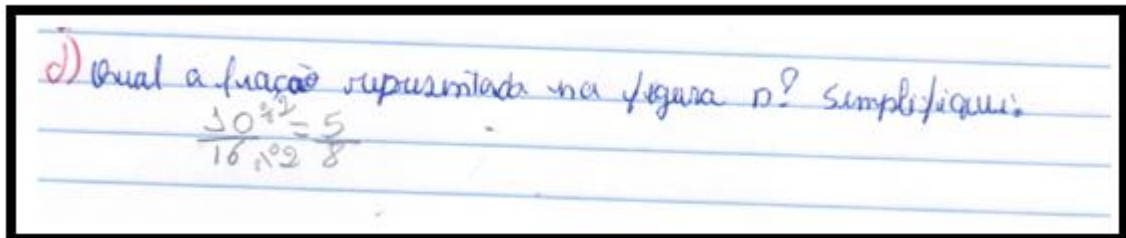 d) Qual a fração representada na figura D? Simplifique:
10÷2 = 5
16÷2 8